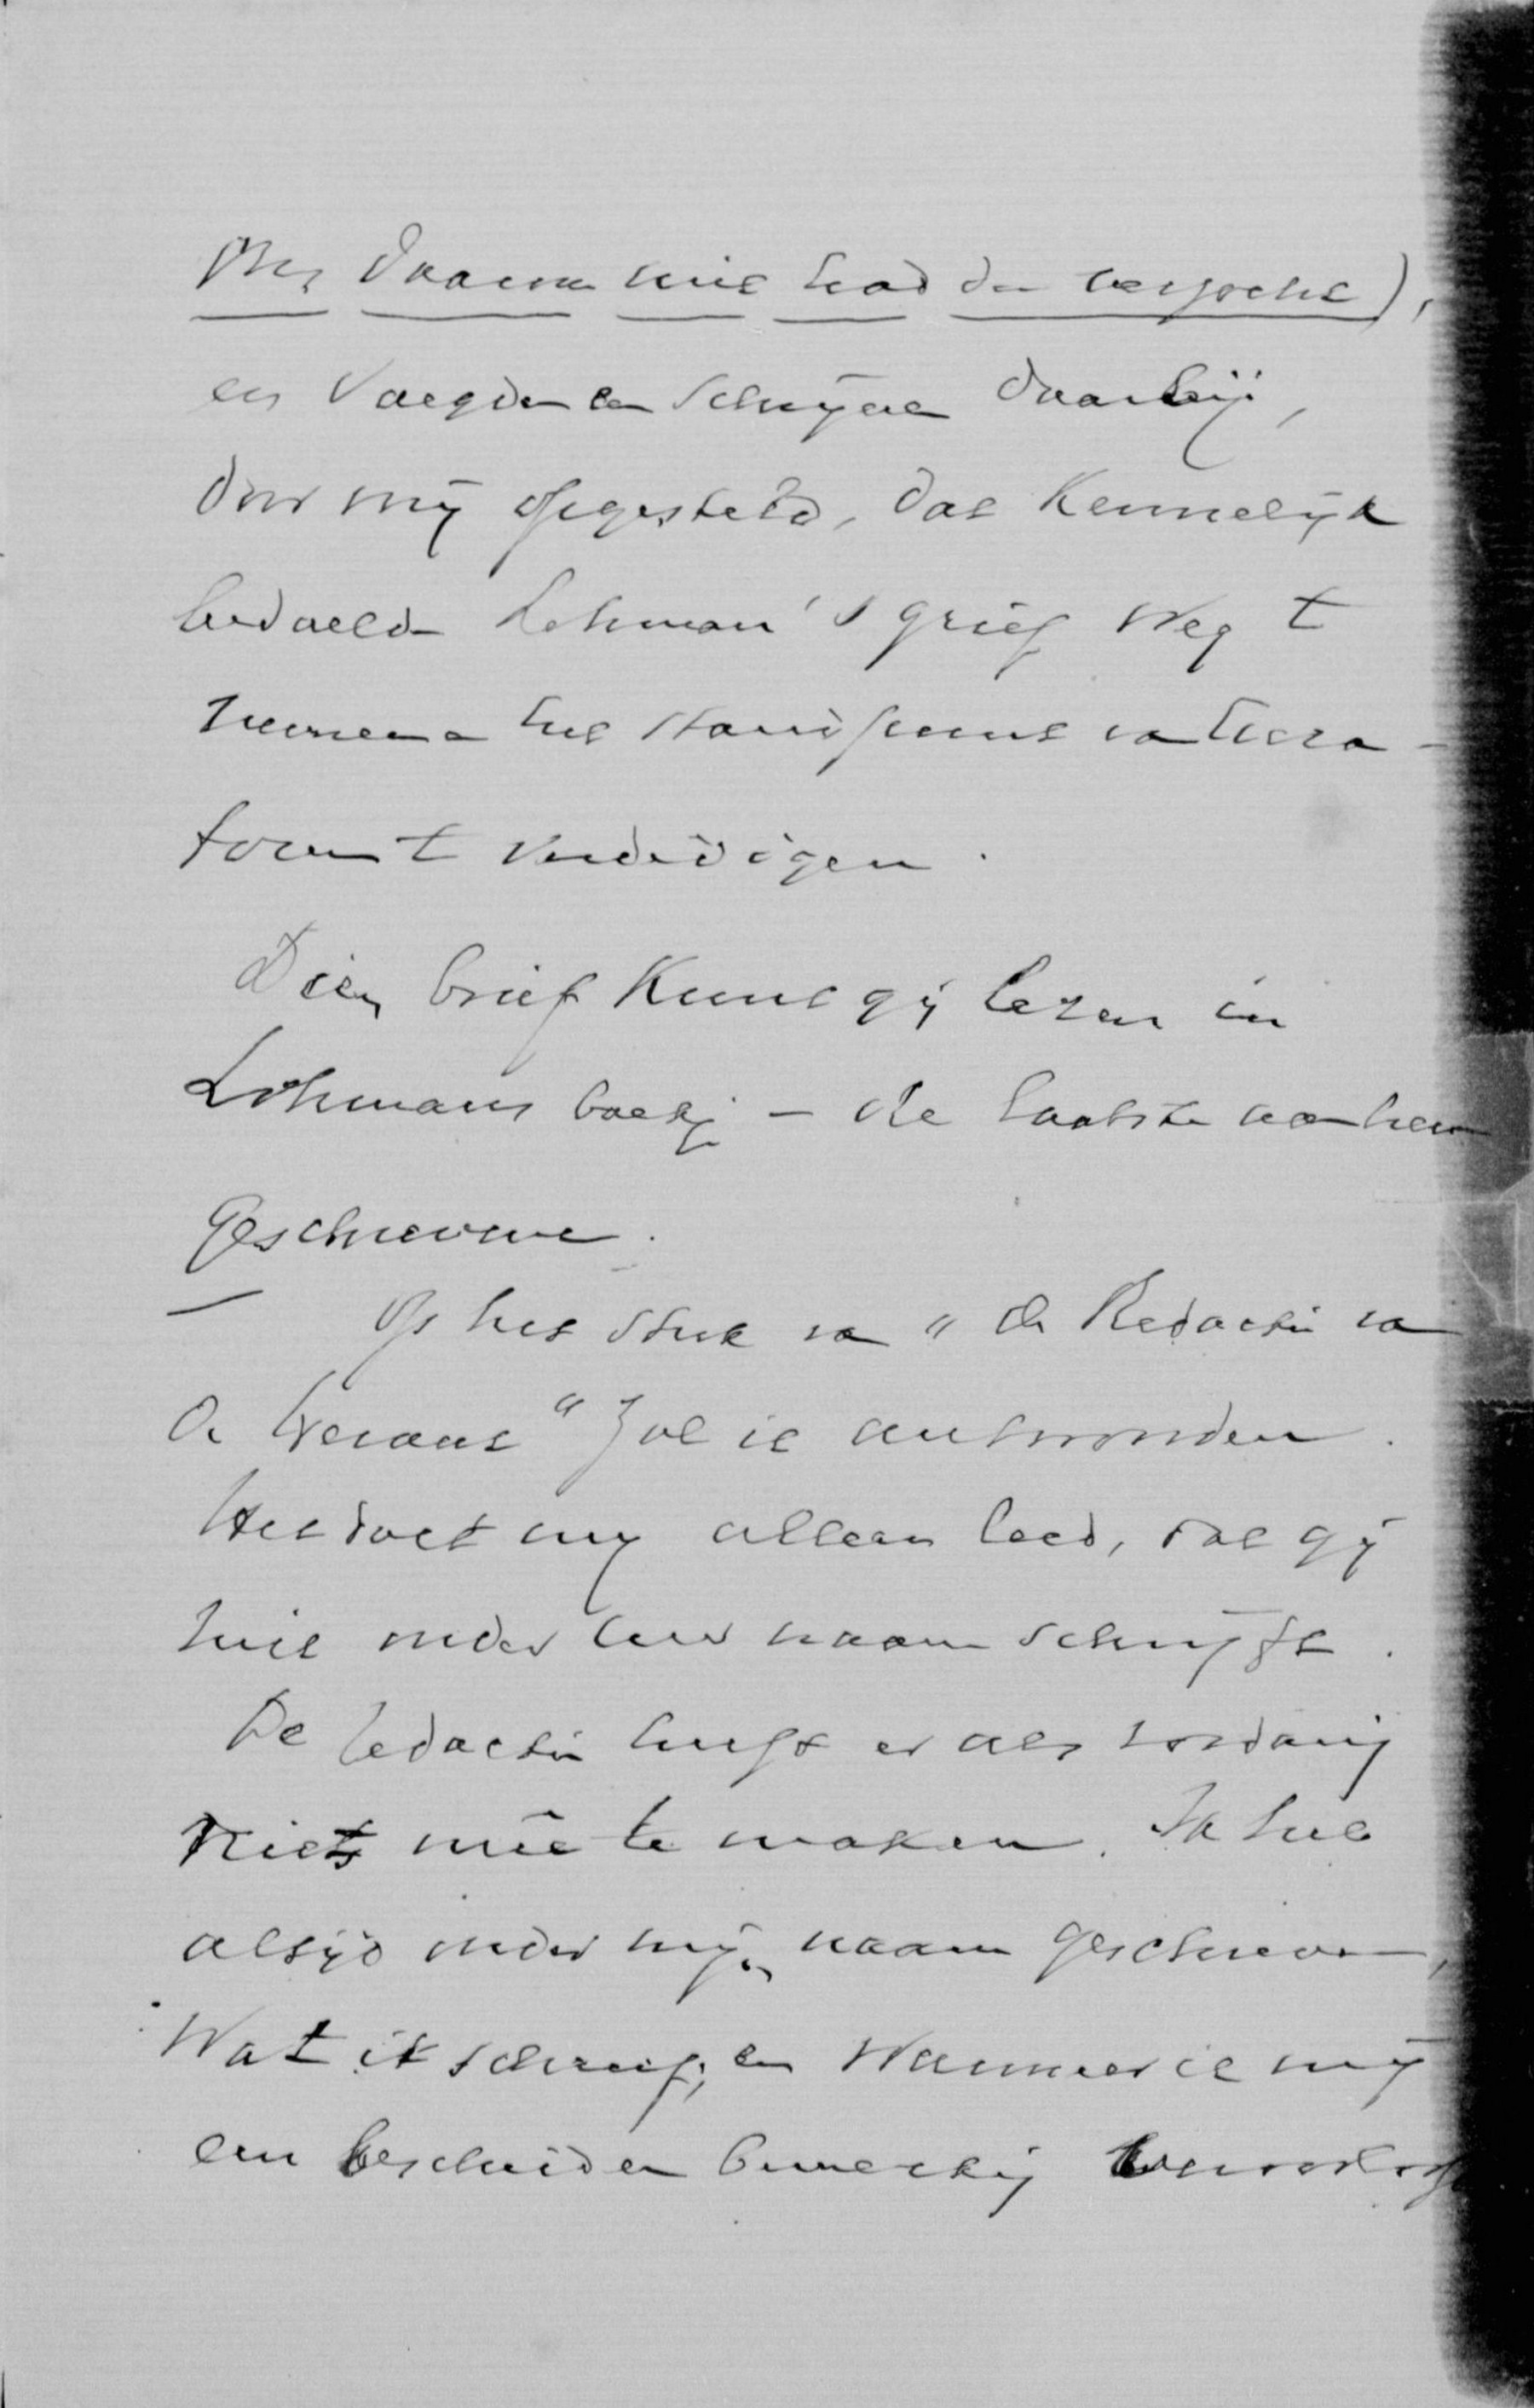 ons daarom niet hadden verzocht),
en voegden een schrijven daarbij,
door mij opgesteld, dat kennelijk
bedoelde Lohman's grief weg te
nemen en het standpunt van
te verdedigen.
Dien brief kunt gij lezen in
Lohmans boekje – de laatste aan hem
geschreven.
Op het stuk van "de Redactie van
de Heraut" zal ik antwoorden.
Het doet mij alleen leed, dat gij
niet onder uw naam schrijft.
De redactie heeft er als zoodanig
niets meê te maken. Ik heb
altijd onder mijn naam geschreven,
Wat ik schreef; en wanneer ik mij
een bescheiden bemerking veroorloof